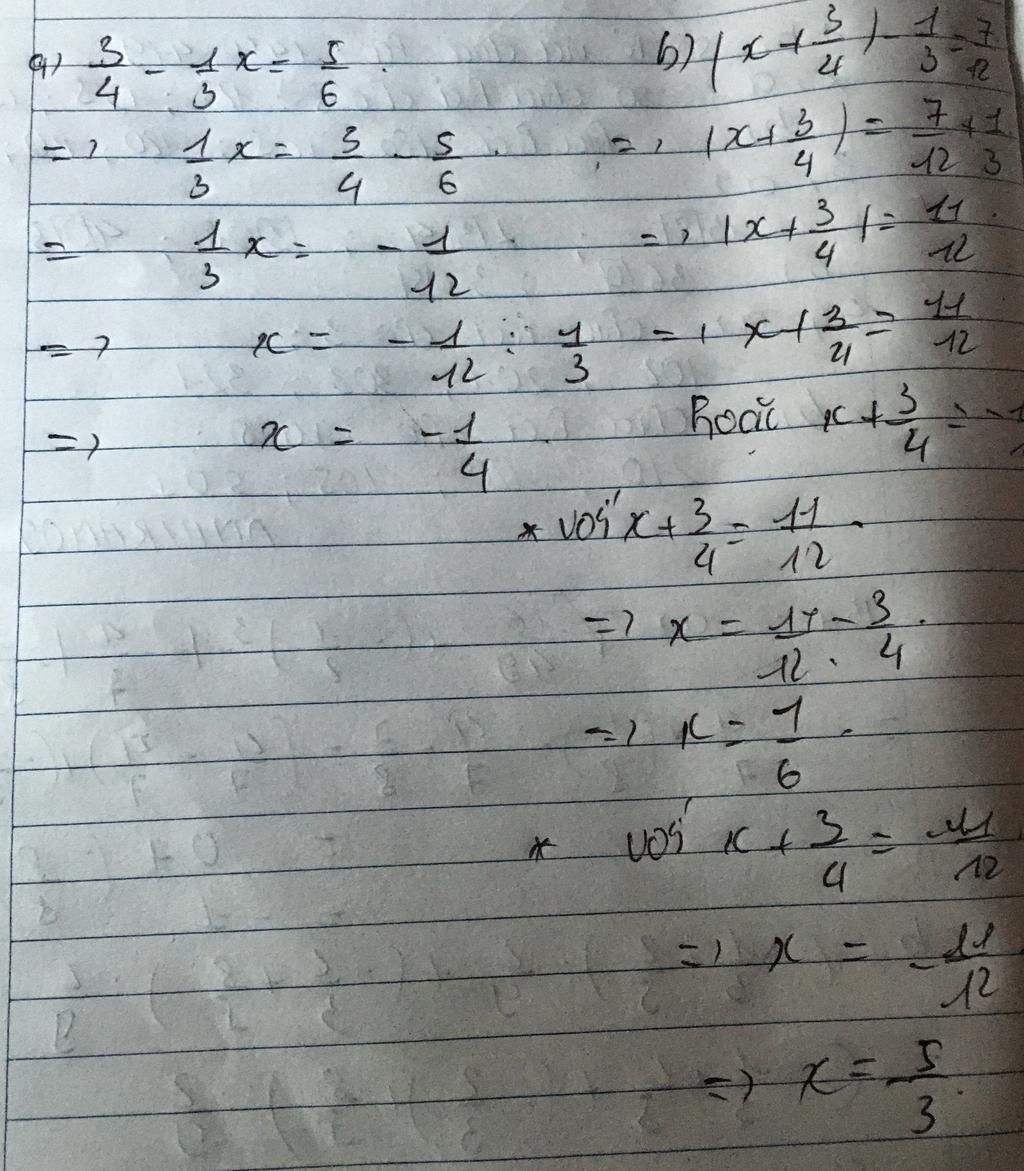 a) 3/4 - 1/3 x = 5/6.
=> 1/3 x = 3/4 - 5/6.
= 1/3 x = -1/12.
=> x = -1/12 : 1/3
=> x = -1/4.
b) |x + 3/4| - 1/3 = 7/12
=> |x + 3/4| = 7/12 + 1/3
=> |x + 3/4| = 11/12.
=> x + 3/4 = 11/12
hoặc x + 3/4 = -1
* với x + 3/4 = 11/12.
=> x = 11/12 - 3/4.
=> x = 1/6.
* với x + 3/4 = -11/12
=> x = -11/12
=> x = -5/3.